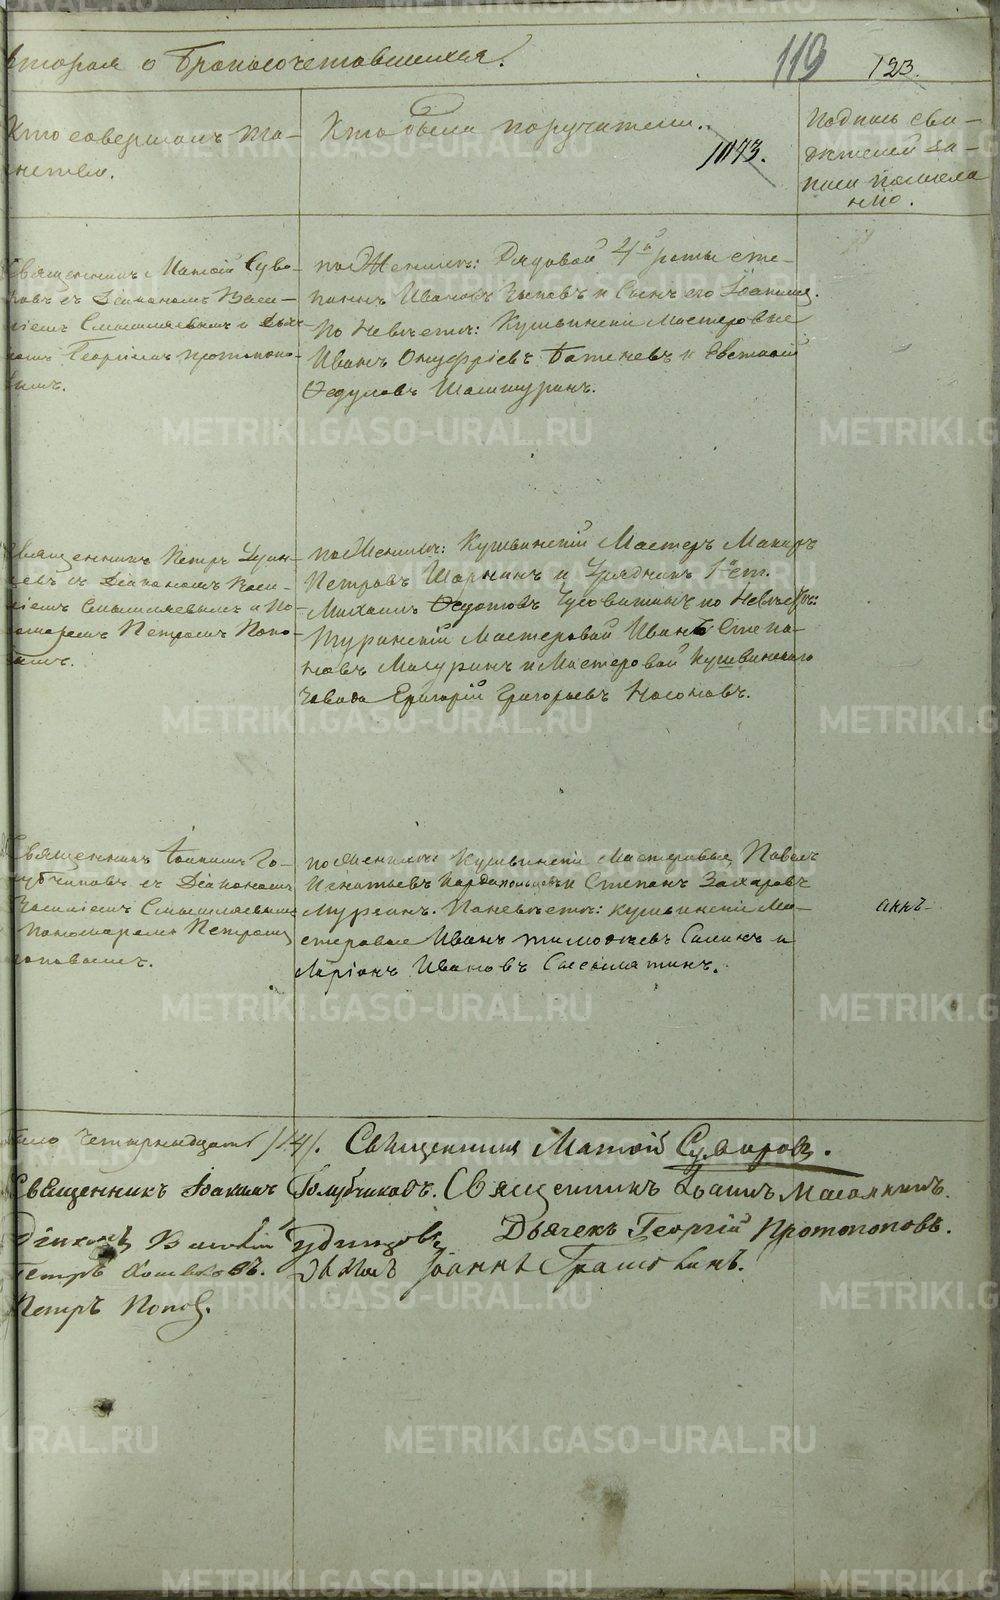 вторая о бракосочетавшихся.
119
123.
Кто совершалъ та-
инство.
Кто были поручители.
1173.
Подпись сви-
дѣтелей за-
писи по жела-
нію.
Священникъ Матѳій Суво-
ровъ съ Діакономъ Васи-
ліемъ Смышляевымъ и Дьяч-
комъ Георгіемъ Протопопо-
вымъ.
по Женихѣ: Рядовой 4й роты Сте-
панъ Ивановъ и Сынъ его Іоакимъ.
По Невѣстѣ: Кушвинскіе Мастеровые
Иванъ Онуфріевъ и Евстафій
Ѳедуловъ
Священникъ Петръ
съ Діакономъ Васи-
ліемъ Смышляевымъ и По-
номаремъ Петромъ Попо-
вымъ.
по Женихѣ: Кушвинскій Мастеръ Макаръ
Петровъ и Урядникъ 1й ст.
Михаилъ Ѳедотовъ Чусовитинъ по Невѣстѣ:
Туринскій Мастеровой Иванъ Степа-
новъ Мазуринъ и Мастеровой Кушвинскаго
Завода Григорій Григорьевъ Носоновъ.
Священникъ Іоакимъ Го-
лубчиковъ съ Діакономъ
Василіемъ Смышляевымъ
Пономаремъ Петромъ
Поповымъ.
по женихѣ: Кушвинскіе Мастеровые Павелъ
Игнатьевъ и Степанъ Захаровъ
Мурзинъ. По невѣстѣ: Кушвинскіе Ма-
стеровые Иванъ Тимоѳеевъ Силинъ и
Ларіонъ Ивановъ
аннъ
четырнадцать /14/. Священникъ Матѳій Суворовъ.
Священникъ Іоакимъ Голубчиковъ. Священникъ Іоаннъ
Діаконъ Василій Удинцовъ Дьячекъ Георгій Протопоповъ.
Петръ Хотьковъ. Іоаннъ
Петръ Поповъ.
METRIKI.GASO-URAL.RU